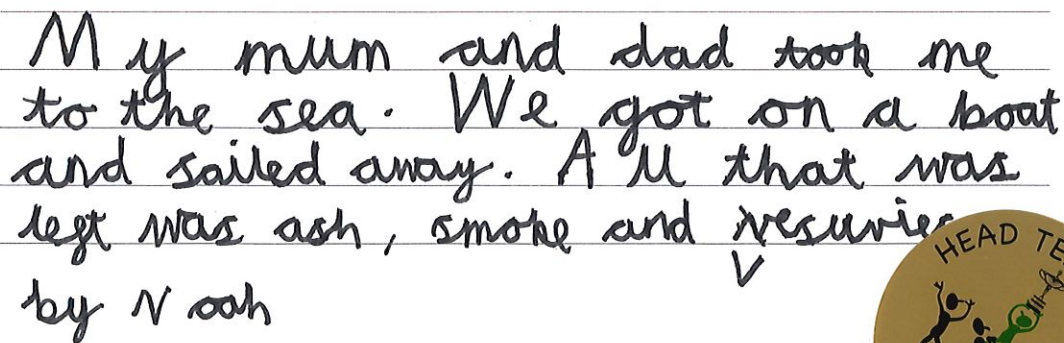 My mum and dad took me
to the sea. We got on a boat
and sailed away. All that was
left was ash, smoke and vesuvies
V
by Noah
HEAD TE